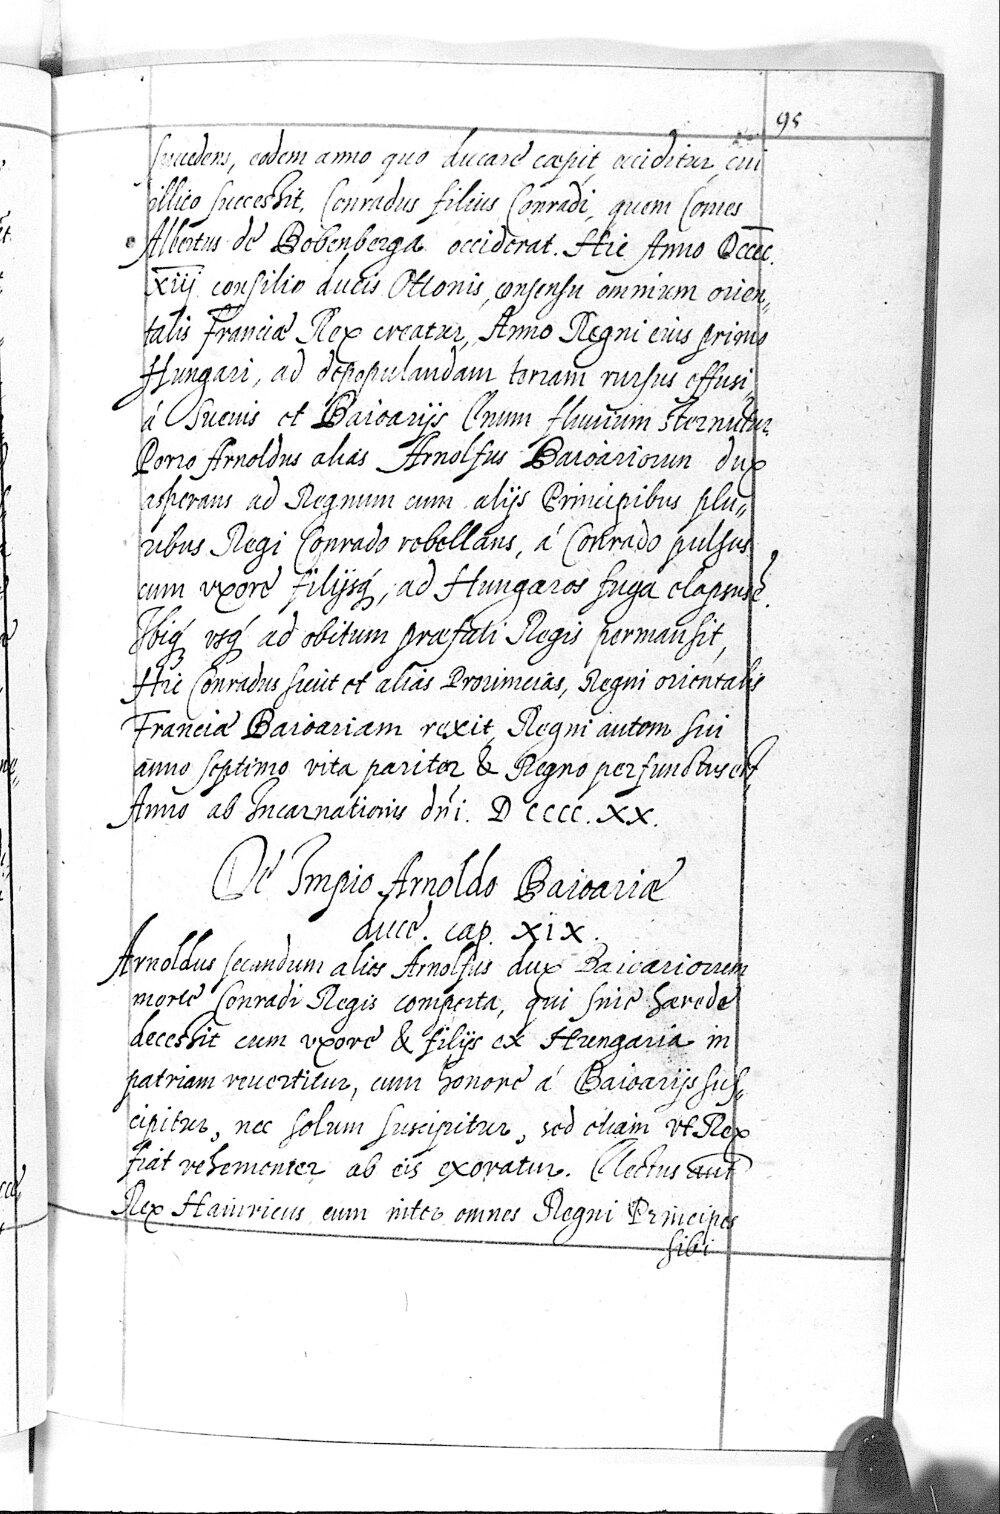 95
succedens, eodem anno quo ducare cæpit, occiditur, cui
illico successit, Conradus filius Conradi, quem Comes
Albertus de Bobenberga occiderat. Hic Anno Dcccc.
XIIJ consilio ducis Ottonis, consensu omnium orien„
talis Franciæ Rex creatur, Anno Regni eius primo
Hungari, ad depopulandam terram rursus effusi,
á Sueuis et Baioarijs Enum fluuium sternutur.
Porro Arnoldus alias Arnolfus Baioariorum dux
asperans ad Regnum cum alijs Principibus plu„
ribus Regi Conrado rebellans, á Conrado pulsus
cum vxore filijsq́, ad Hungaros fuga elapsus ẽ.
Ibiq́ vsq́ ad obitum præfati Regis permansit,
Hic Conradus sicut et alias Prouincias, Regni orientalis
Franciæ Baioariam rexit, Regni autem sui
anno septimo vita pariter & Regno perfunctus est,
Anno ab Incarnationis dńi. D CCCC. XX.
De Impio Arnoldo Baioariæ
duce. cap. XIX.
Arnoldus secundum alios Arnolfus dux Baioariorum
morte Conradi Regis comperta, qui sine hærede
decessit cum vxore & filijs ex Hungaria in
patriam reuertitur, cum honore á Baioarijs sus„
cipitur, nec solum suscipitur, sed etiam vt Rex
fiat vehementer ab eis exoratur. Electus aut̃
Rex Hainricus cum inter omnes Regni Principes
sibi